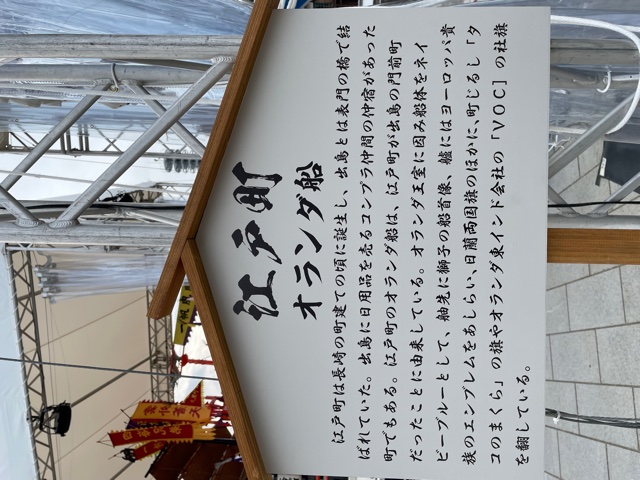 江戸町
オランダ船
江戸町は長崎の町建ての頃に誕生し、出島とは表門の橋で結
ばれていた。出島に日用品を売るコンプラ仲間の仲宿があった
町でもある。江戸町のオランダ船は、江戸町が出島の門前町
だったことに由来している。オランダ王室に因み船体をネイ
ビーブルーとして、舳先に獅子の船首像、艫にはヨーロッパ貴
族のエンブレムをあしらい、日蘭両国旗のほかに、町じるし「タ
コのまくら」の旗やオランダ東インド会社の「VOC］の社旗
を翻している。